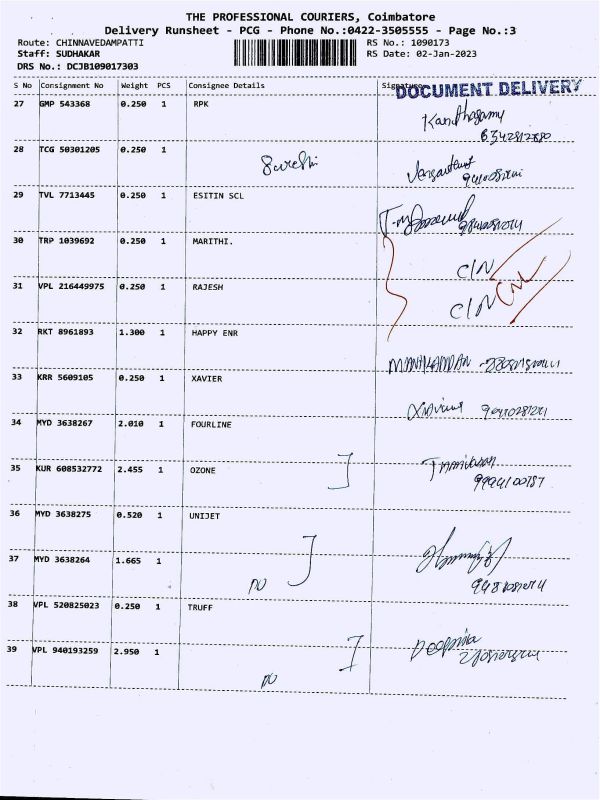 THE PROFESSIONAL COURIERS, Coimbatore
Delivery Runsheet - PCG - Phone No.:0422-3505555 - Page No.:3
Route: CHINNAVEDAMPATTI RS No.: 1090173
Staff: SUDHAKAR RS Date: 02-Jan-2023
DRS No.: DCJB109017303
S No Consignment No Weight PCS Consignee Details Signature
DOCUMENT DELIVERY
27 GMP 543368 0.250 1 RPK
Kandhasamy
28 TCG 50301205 0.250 1
Sureshi
29 TVL 7713445 0.250 1 ESITIN SCL
30 TRP 1039692 0.250 1 MARITHI.
C/N
31 VPL 216449975 0.250 1 RAJESH
C/N
32 RKT 8961893 1.300 1 HAPPY ENR
MANIKANDAN
33 KRR 5609105 0.250 1 XAVIER
Xavier
34 MYD 3638267 2.010 1 FOURLINE
35 KUR 608532772 2.455 1 OZONE
9994100787
36 MYD 3638275 0.520 1 UNIJET
37 MYD 3638264 1.665 1
DO
38 VPL 520825023 0.250 1 TRUFF
39 VPL 940193259 2.950 1
DO